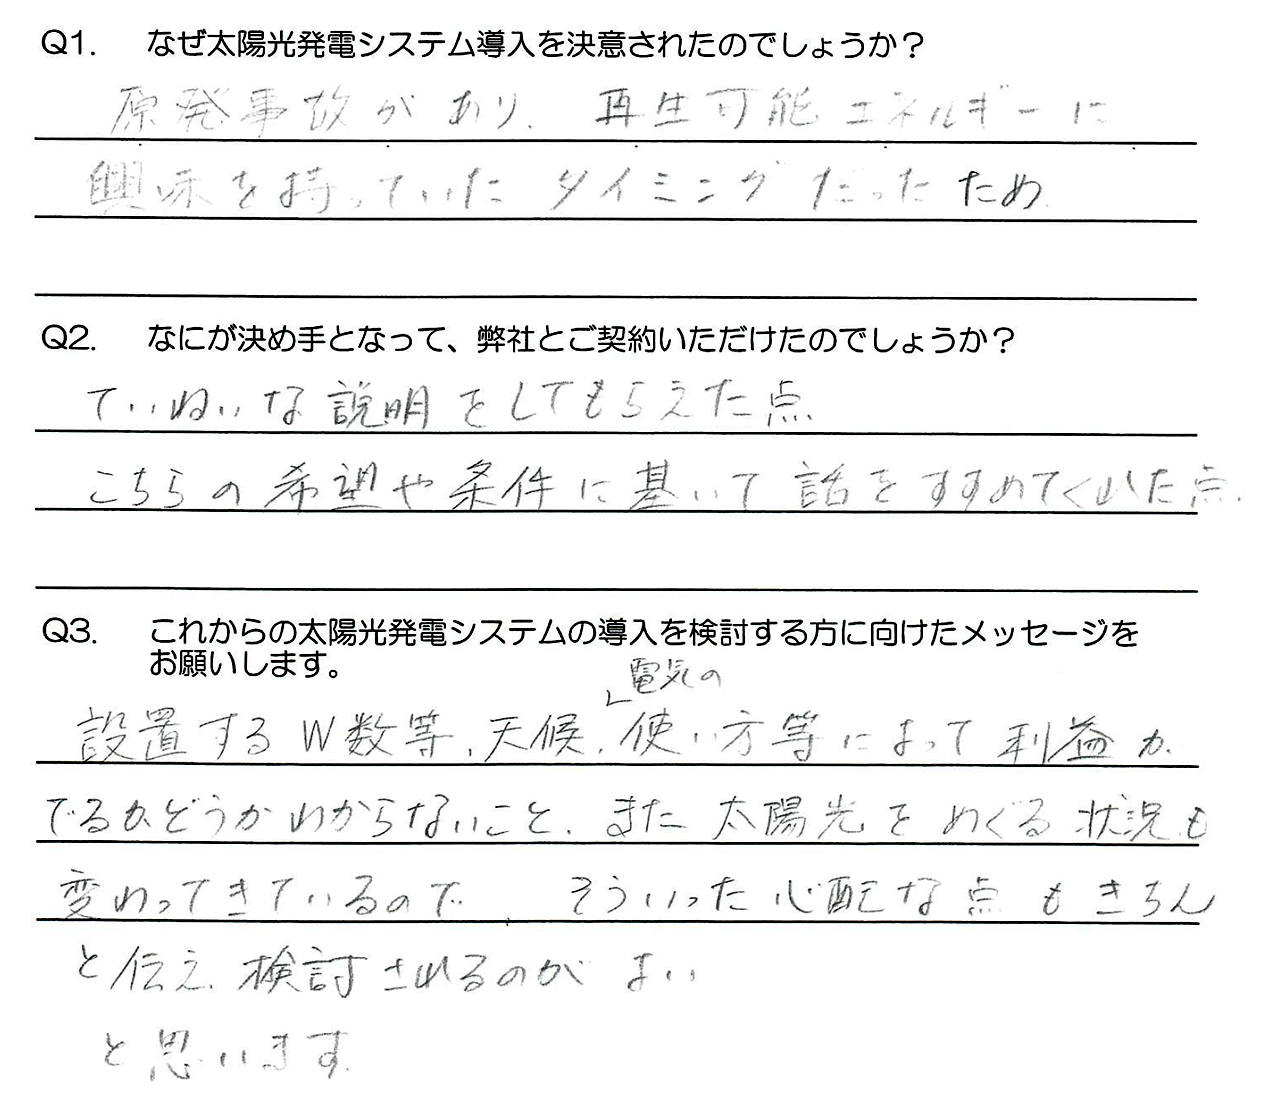 Q1. なぜ太陽光発電システム導入を決意されたのでしょうか？
原発事故があり、再生可能エネルギーに
興味を持っていたタイミングだったため.
Q2. なにが決め手となって、弊社とご契約いただけたのでしょうか？
ていねいな説明をしてもらえた点.
こちらの希望や条件に基いて話をすすめてくれた点.
Q3. これからの太陽光発電システムの導入を検討する方に向けたメッセージを
お願いします。
電気の
設置するW数等、天候、使い方等によって利益が
でるかどうかわからないこと、また太陽光をめぐる状況も
変わってきているので そういった心配な点もきちん
と伝え、検討されるのがよい
と思います.